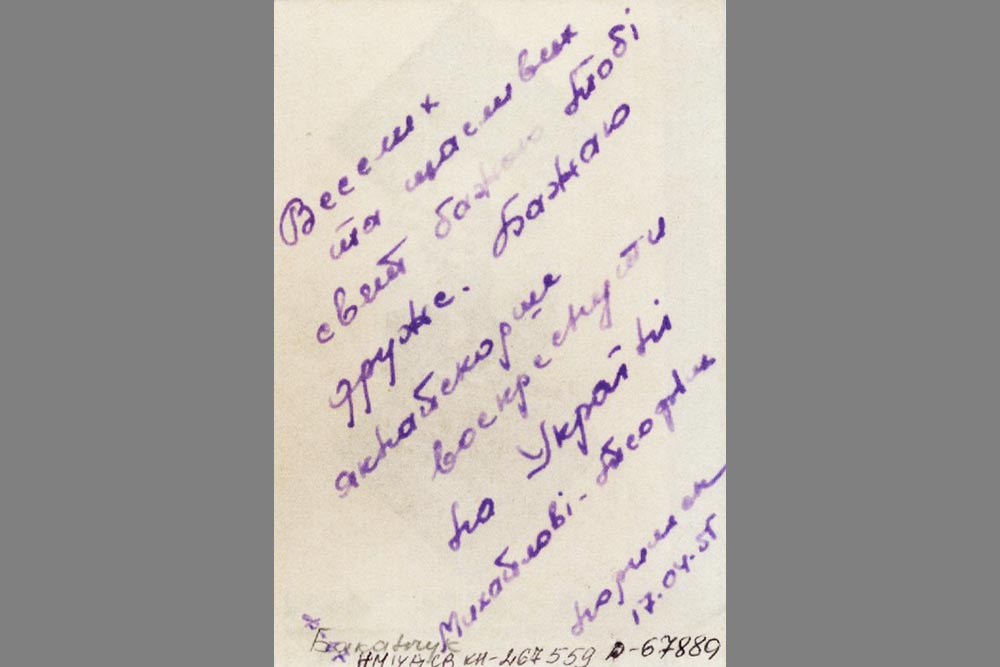 Веселих
та щасливих
свят бажаю Тобі
друже. Бажаю
воскреснути
на Україні
Михайлові - Теодор
Норильск
17.04.55
Баканчук
НМІУ КВ КН-267559 Ф-67889